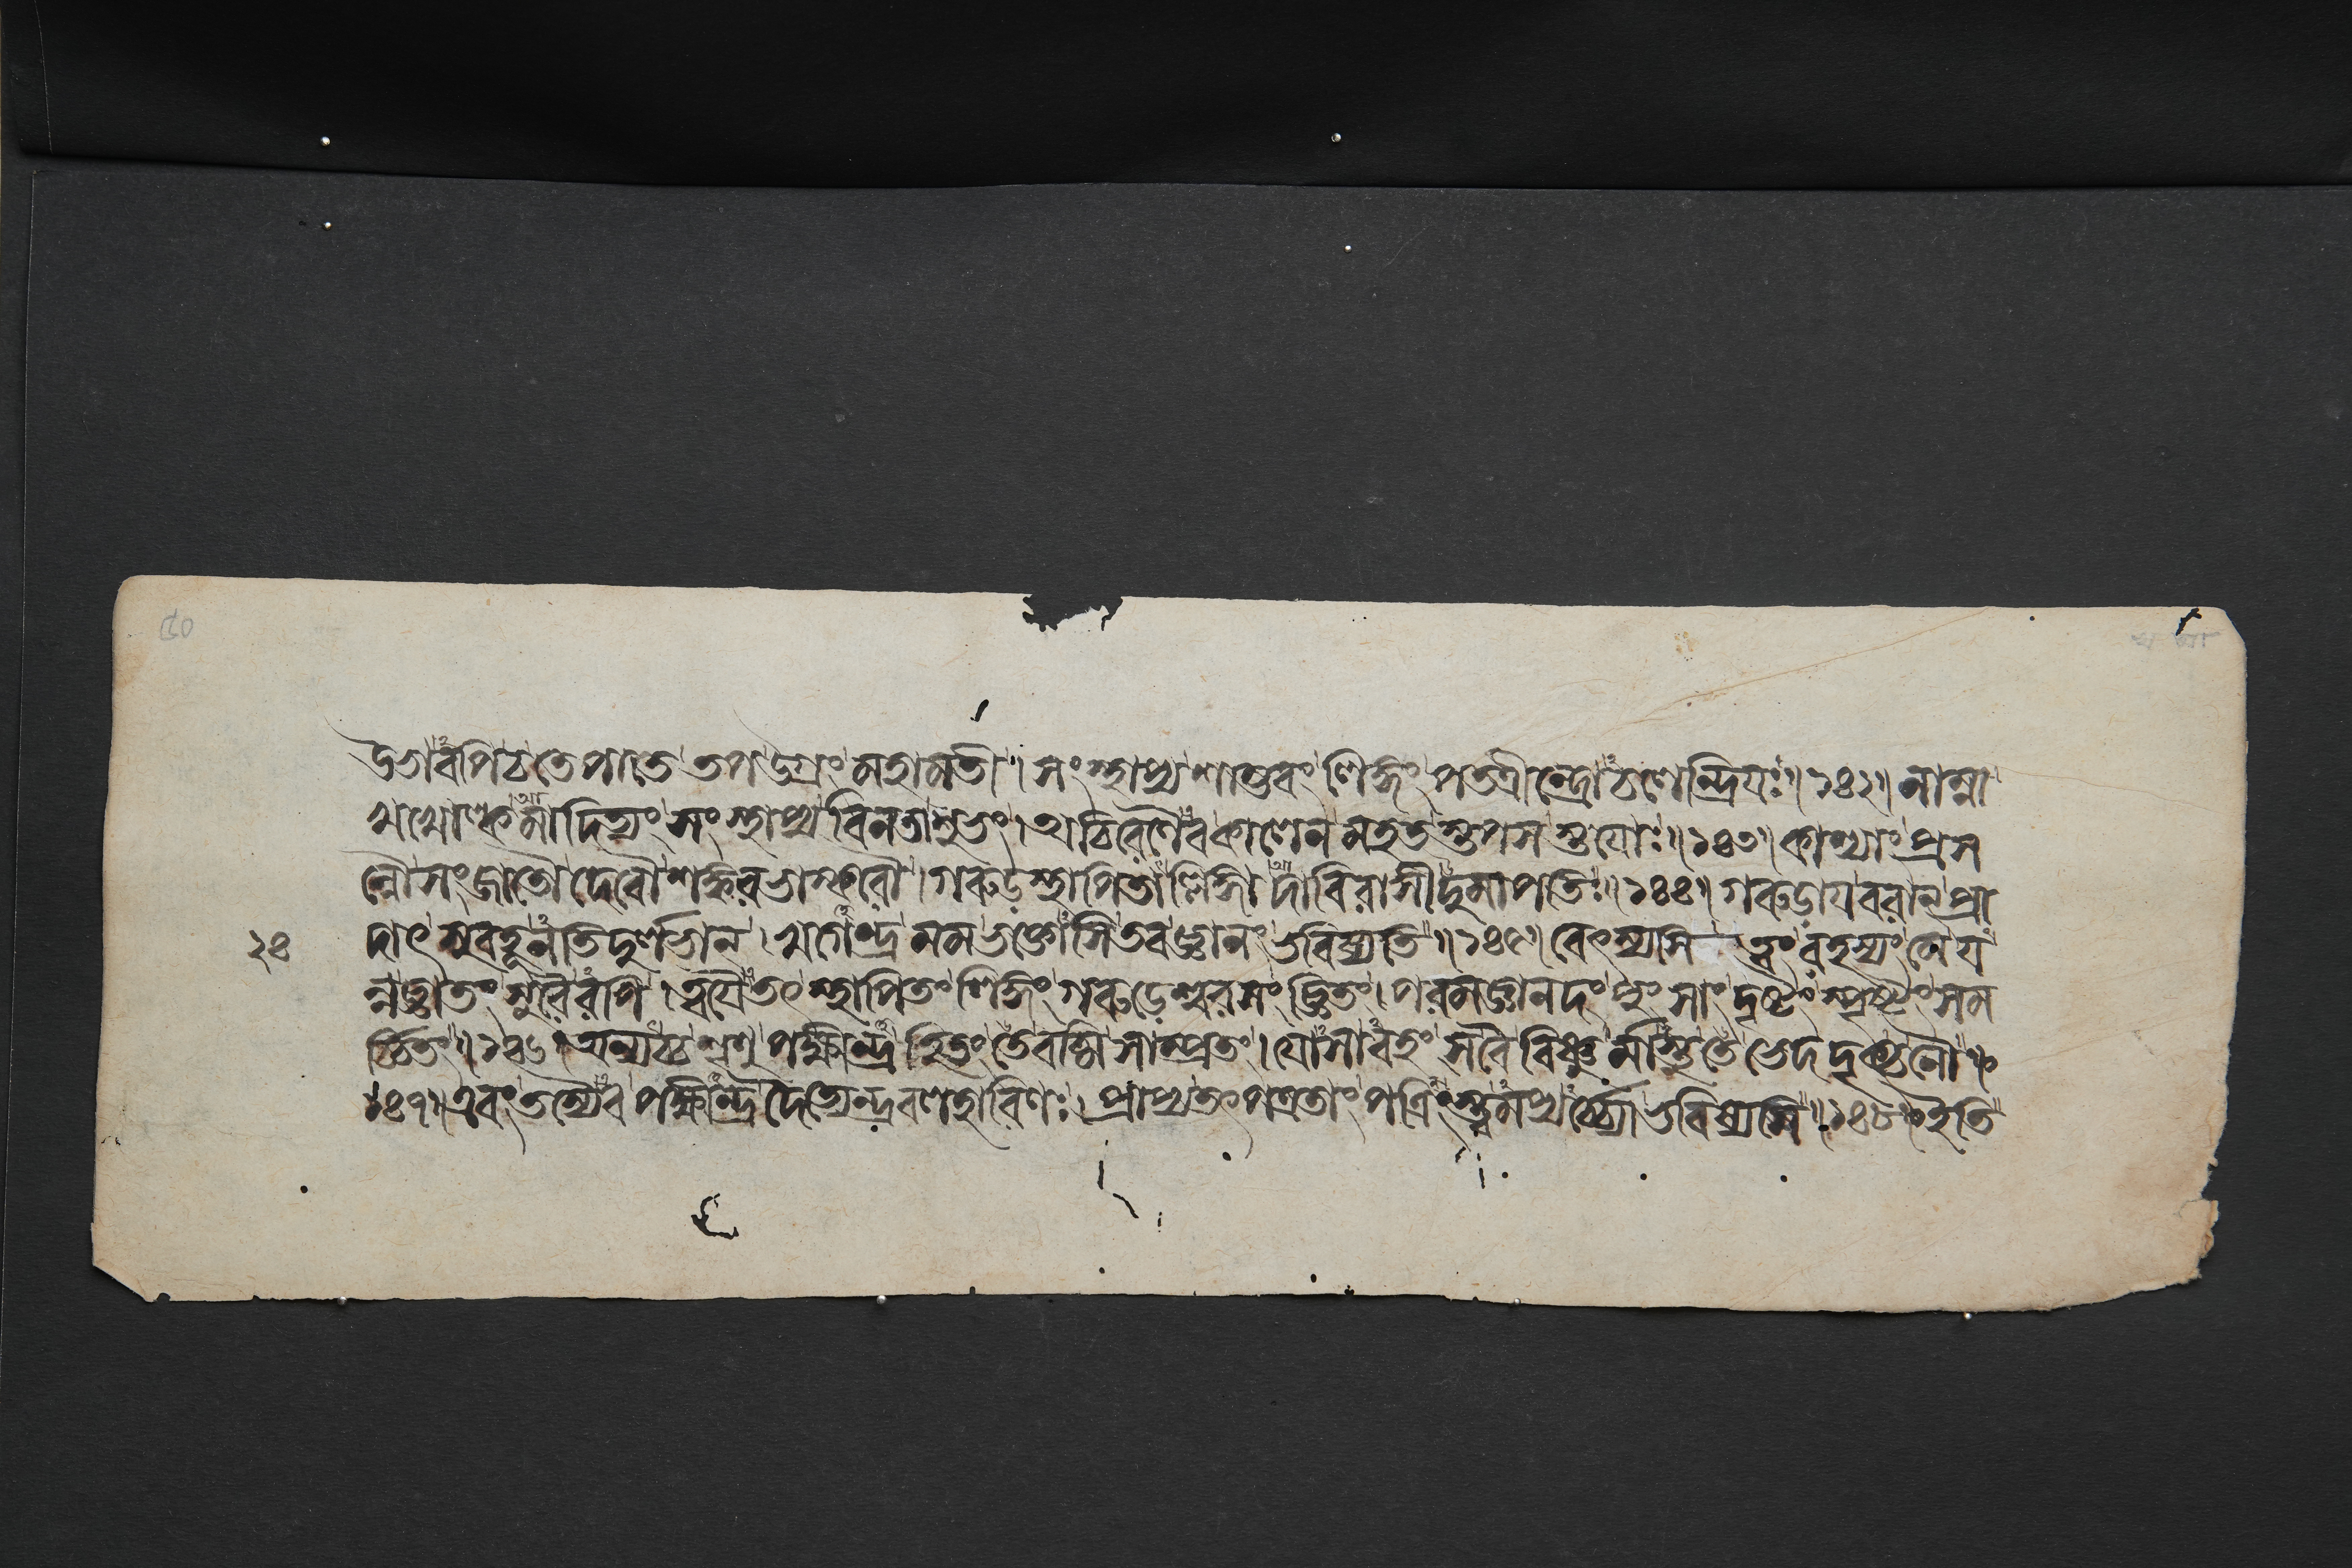 ৫০
উভাবপি চ তেপাতে তপ উগ্রং মহামতী। সংস্থাপ্য শাম্ভবং লিঙ্গং পতত্রীন্দ্রো চলেন্দ্রিয়ঃ॥১৪২॥ নাম্না
খখোল্কমাদিত্যং সংস্থাপ্য বিনতাশুভং। অচিরেণৈব কালেন মহতস্তপসস্তয়োঃ॥১৪৩॥ কাশ্যাং প্রস
ন্নৌ সংজাতৌ দেবৌ শঙ্করভাস্করৌ। গরুড়স্থাপিতাল্লিঙ্গাদাবিরাসীদুমাপতিঃ॥১৪৪॥ গরুড়ায় বরান্ প্রা
২৪ দাৎ সুবহূনতিদুর্লভান্। খগেন্দ্র মম ভক্তোসি তব জ্ঞানং ভবিষ্যতি॥১৪৫॥ বেৎস্যসি ত্বং রহস্যং মে য
ন্নজ্ঞাতং সুরৈরপি। ত্বয়ৈতৎ স্থাপিতং লিঙ্গং গরুড়েশ্বরসংজ্ঞিতং। পরমজ্ঞানদং পুংসাং দৃষ্টং স্পৃষ্টং সম
র্চ্চিতং॥১৪৬॥ অন্যচ্চ শৃণু পক্ষীন্দ্র হিতং তে বচ্মি সাম্প্রতং। যোসাবহং স বৈ বিষ্ণুর্মাস্তু তে ভেদদৃক্ চ নৌ॥
১৪৭॥ এবং তস্যৈব পক্ষীন্দ্র দৈত্যেন্দ্রবলহারিণঃ। প্রাপ্য পত্রতাং পত্রিংস্ত্বমপ্যর্চ্চ্যো ভবিষ্যসি॥১৪৮॥ ইতি